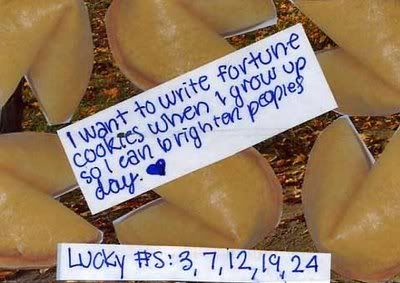 I want to write fortune
cookies when I grow up
so I can brighten peoples
day. ♥
Lucky #s: 3, 7, 12, 19, 24